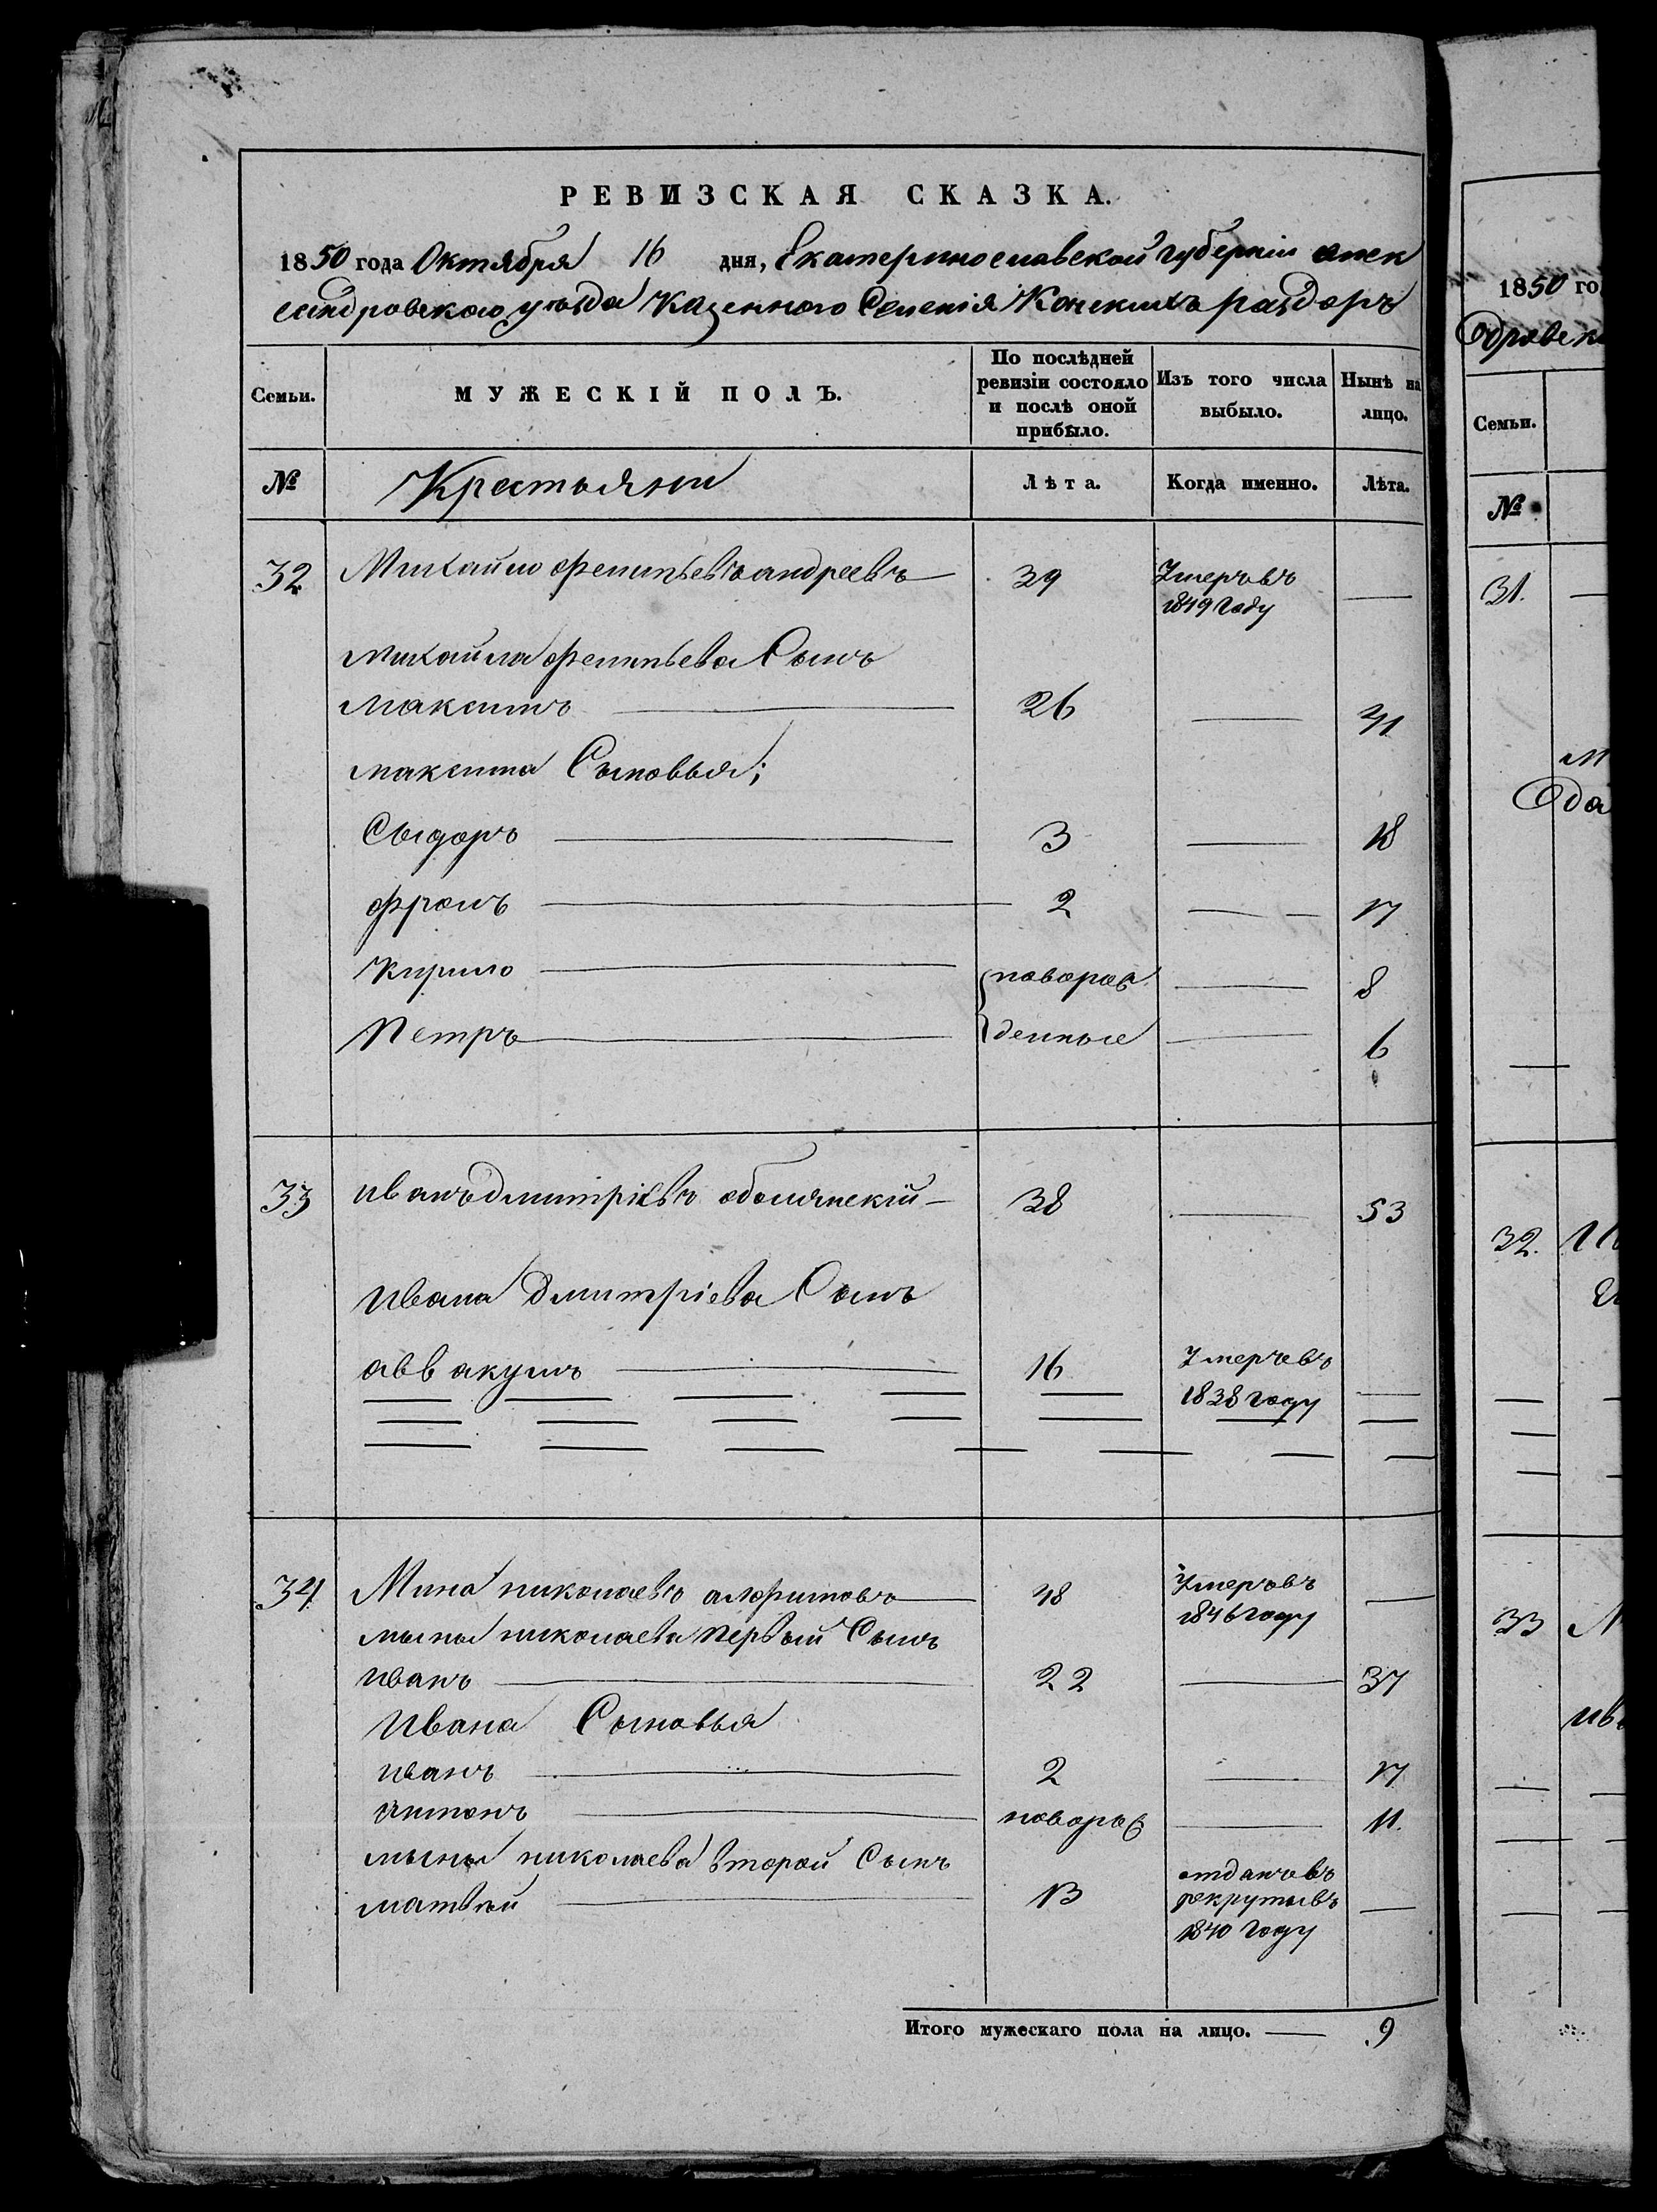 РЕВИЗСКАЯ СКАЗКА.
1850 года Октября 16 дня, Екатеринославской губернiи алек
сандровского уѣзда Казенного Селенiя Конскихъ раздоръ
Семьи.
МУЖЕСКІЙ ПОЛЪ.
По послѣдней ревизіи состояло и послѣ оной прибыло.
Изъ того числа выбыло.
Нынѣ на лицо.
№ Крестьяни Лѣта. Когда именно. Лѣта.
32 Михайло филипьевъ андреевъ 39 Умеръ въ — 
1849 году
Михайла филипьева Сынъ
Максимъ 26 — 41
максима Сыновья;
Сыдоръ 3 — 18
фролъ 2 — 17
Кирило новорож — 8
Петръ денные — 6
33 иванъ дмитрiевъ оболянскiй 38 — 53
Ивана Дмитрiева Сынъ
аввакумъ 16 Умеръ въ
1838 году —
34 Мина николаевъ 48 Умеръ въ —
1846 году
мины николаева первый Сынъ
иванъ 22 — 37
Ивана Сыновья
иванъ 2 — 17
антонъ новорож — 11.
мины николаева второй Сынъ
матвѣй 13 отданъ въ
рекруты въ —
1840 году
Итого мужескаго пола на лицо. — 9
1850 го
дровск
Семьи.
№
31.
32.
33